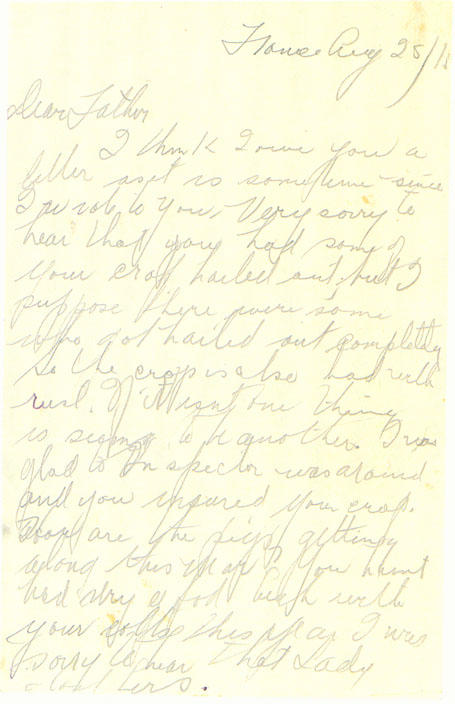 France Aug 25/18
Dear Father
I think I owe you a
letter as it is sometime since
I wrote to you. Very sorry to
hear that you had some of
your crop hailed out but I
suppose there were some
who got hailed out completly
So the crop is also bad with
rust. If it isnt one thing
is seems to be another. I was
glad to Inspector was around
and you insured your crop.
How are the pigs getting
along this year? You havnt
had very good luck with
your colts this year I was
sorry to hear that Lady
lost hers.